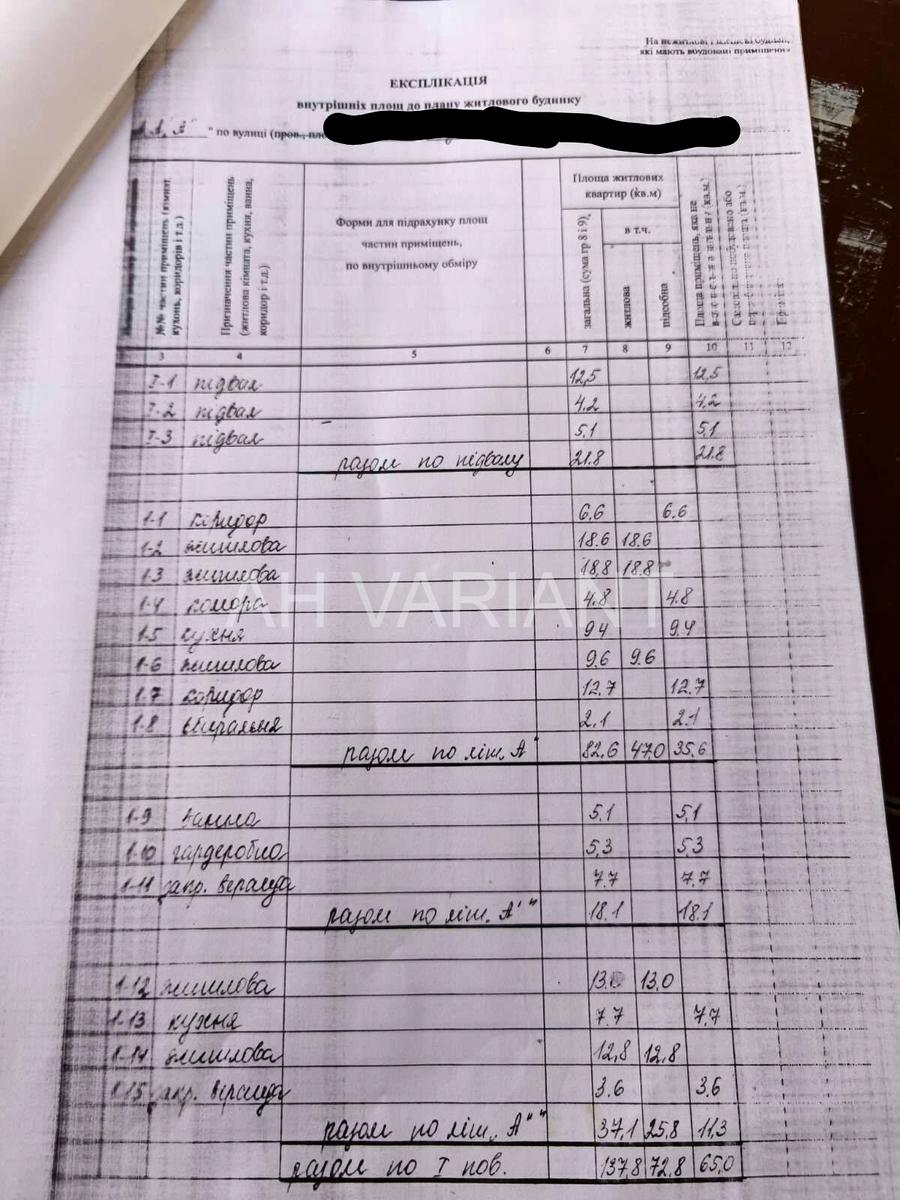 На нежитлові і житлові будівлі,
які мають вбудовані приміщення
ЕКСПЛІКАЦІЯ
внутрішніх площ до плану житлового будинку
А, А' " по вулиці (пров., пло
№№ частин приміщень (кімнат, кухонь, коридорів і т.д.)
Призначення частин приміщень (житлова кімната, кухня, ванна, коридор і т.д.)
Форми для підрахунку площ
частин приміщень,
по внутрішньому обміру
Площа житлових
квартир (кв.м)
загальна (сума гр 8 і 9),
в т.ч.
житлова
підсобна
Площа приміщень, яка не
3 4 5 6 7 8 9 10 11 12
I-1 підвал 12,5 12,5
I-2 підвал 4.2 4,2
I-3 підвал 5,1 5,1
разом по підвалу 21.8 21.8
1-1 коридор 6.6 6.6
1-2 житлова 18.6 18.6
1-3 житлова 18,8 18.8
1-4 комора 4.8 4.8
1-5 кухня 9 4 9.4
1-6 житлова 9.6 9.6
1-7 коридор 12.7 12.7
1-8 вбиральня 2.1 2.1
разом по літ. А" 82.6 47.0 35.6
AH VARIANT
1-9 ванна 5.1 5,1
1-10 гардеробна 5,3 5,3
1-11 закр. веранда 7.7 7.7
разом по літ. А' " 18.1 18.1
1-12 житлова 13.0 13,0
1-13 кухня 7.7 7,7
1-14 житлова 12,8 12,8
1-15 закр. веранда 3.6 3.6
разом по літ. „А" " 37,1 25,8 11,3
разом по I пов. 137,8 72,8 65,0